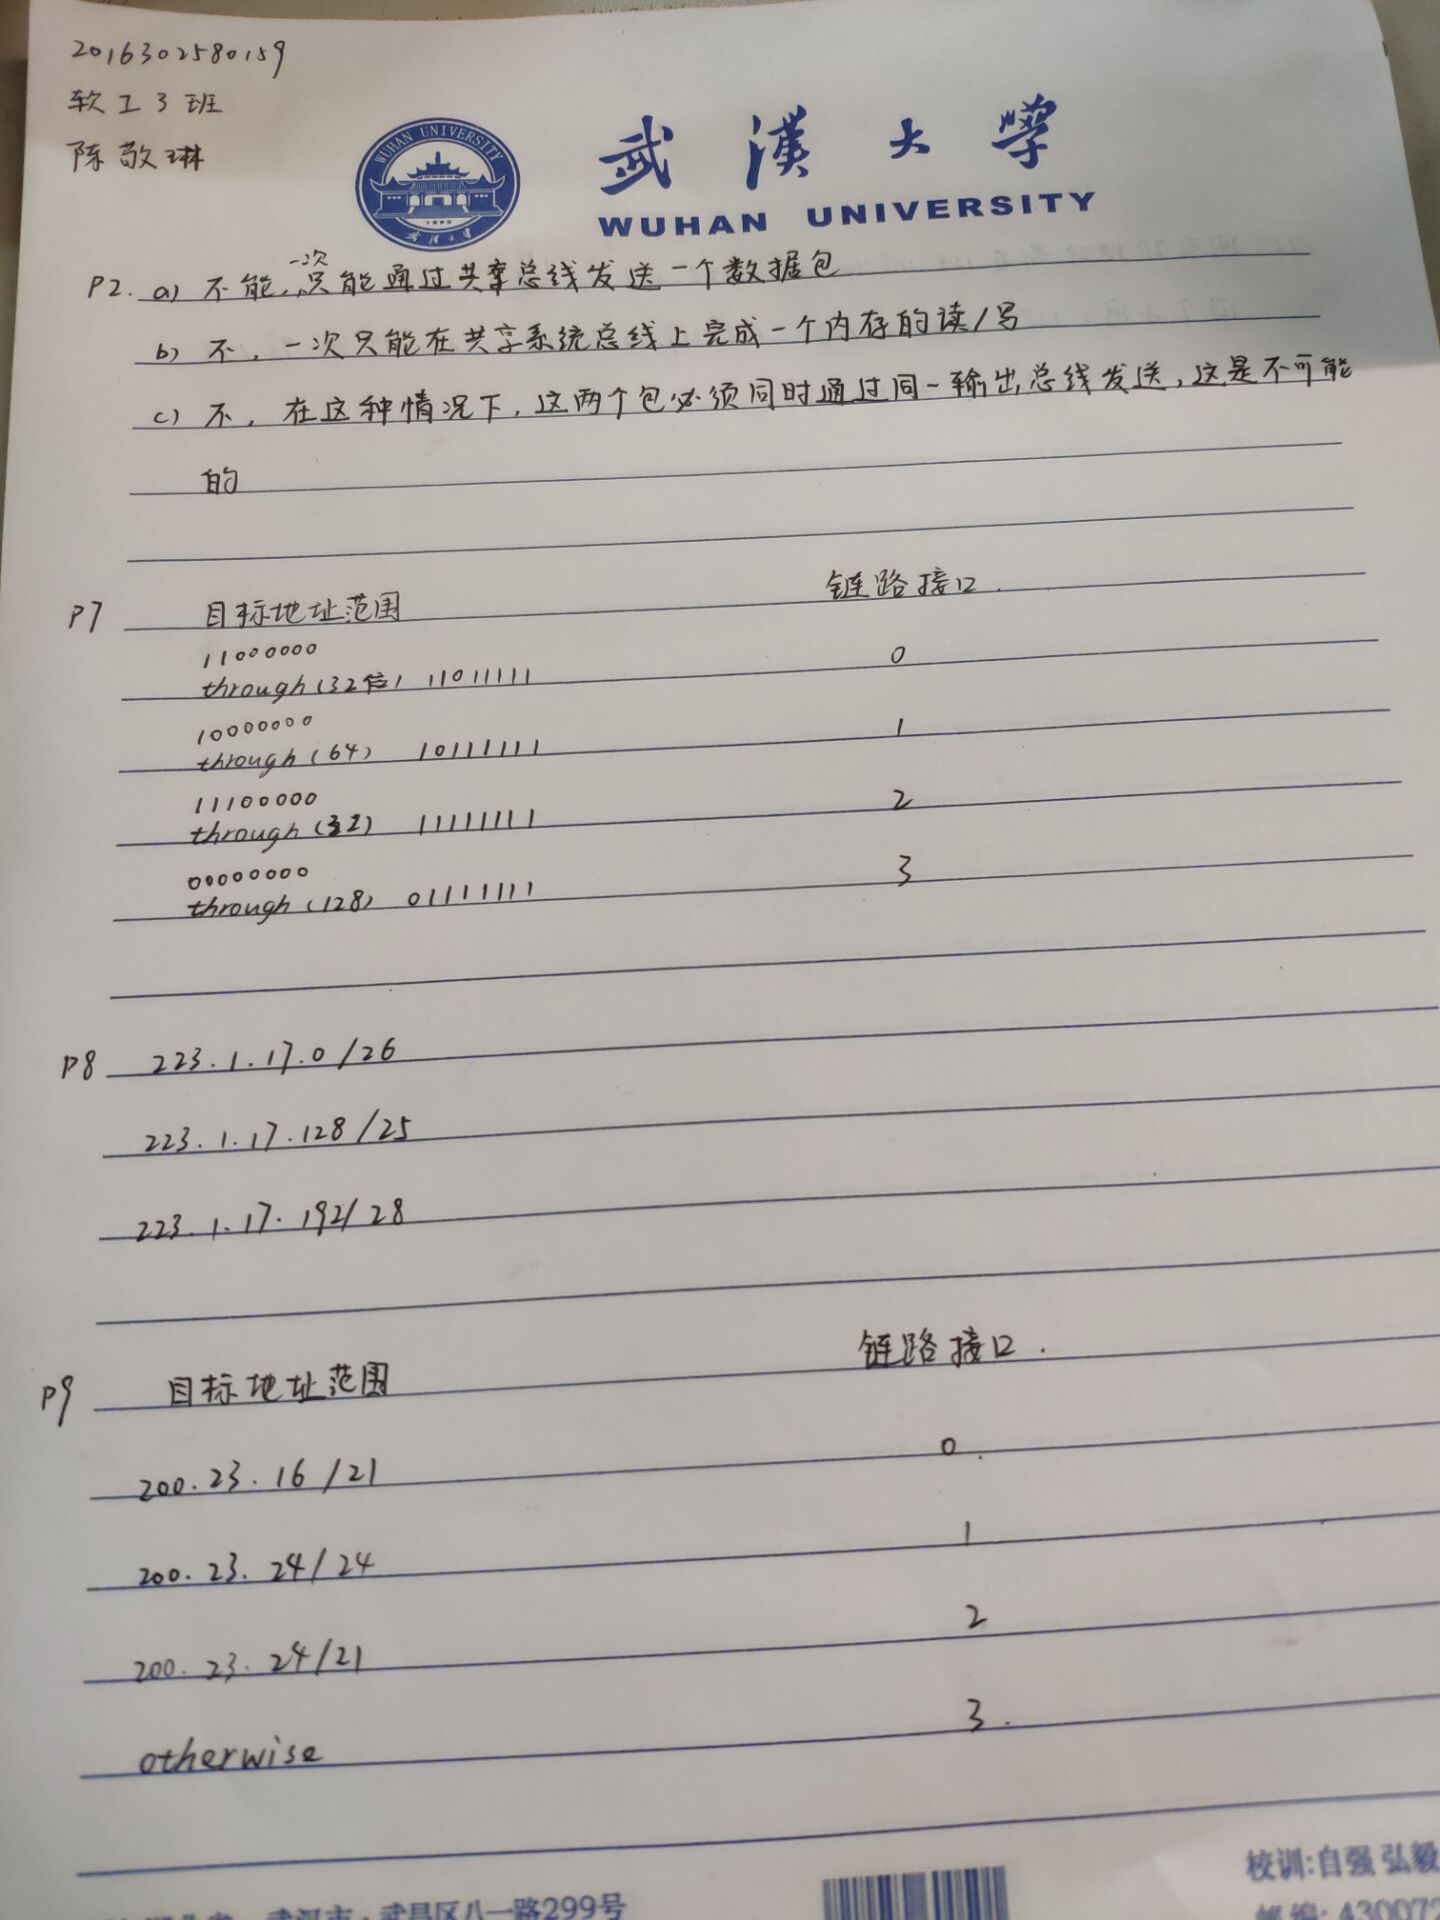 2016302580159
软工3班
陈敬琳
WUHAN UNIVERSITY
武漢大學
WUHAN UNIVERSITY
一次
P2. a) 不能,只能通过共享总线发送一个数据包
b) 不,一次只能在共享系统总线上完成一个内存的读/写
c) 不,在这种情况下,这两个包必须同时通过同一输出总线发送,这是不可能
的
P7 目标地址范围 链路接口.
11000000
through(32位) 11011111 0
10000000
through(64) 10111111 1
11100000
through(32) 11111111 2
00000000
through(128) 01111111 3
P8 223.1.17.0/26
223.1.17.128/25
223.1.17.192/28
P9 目标地址范围 链路接口.
200.23.16/21 0.
200.23.24/24 1
200.23.24/21 2
otherwise 3.
校训:自强 弘毅
武汉市·武昌区八一路299号
邮编:430072